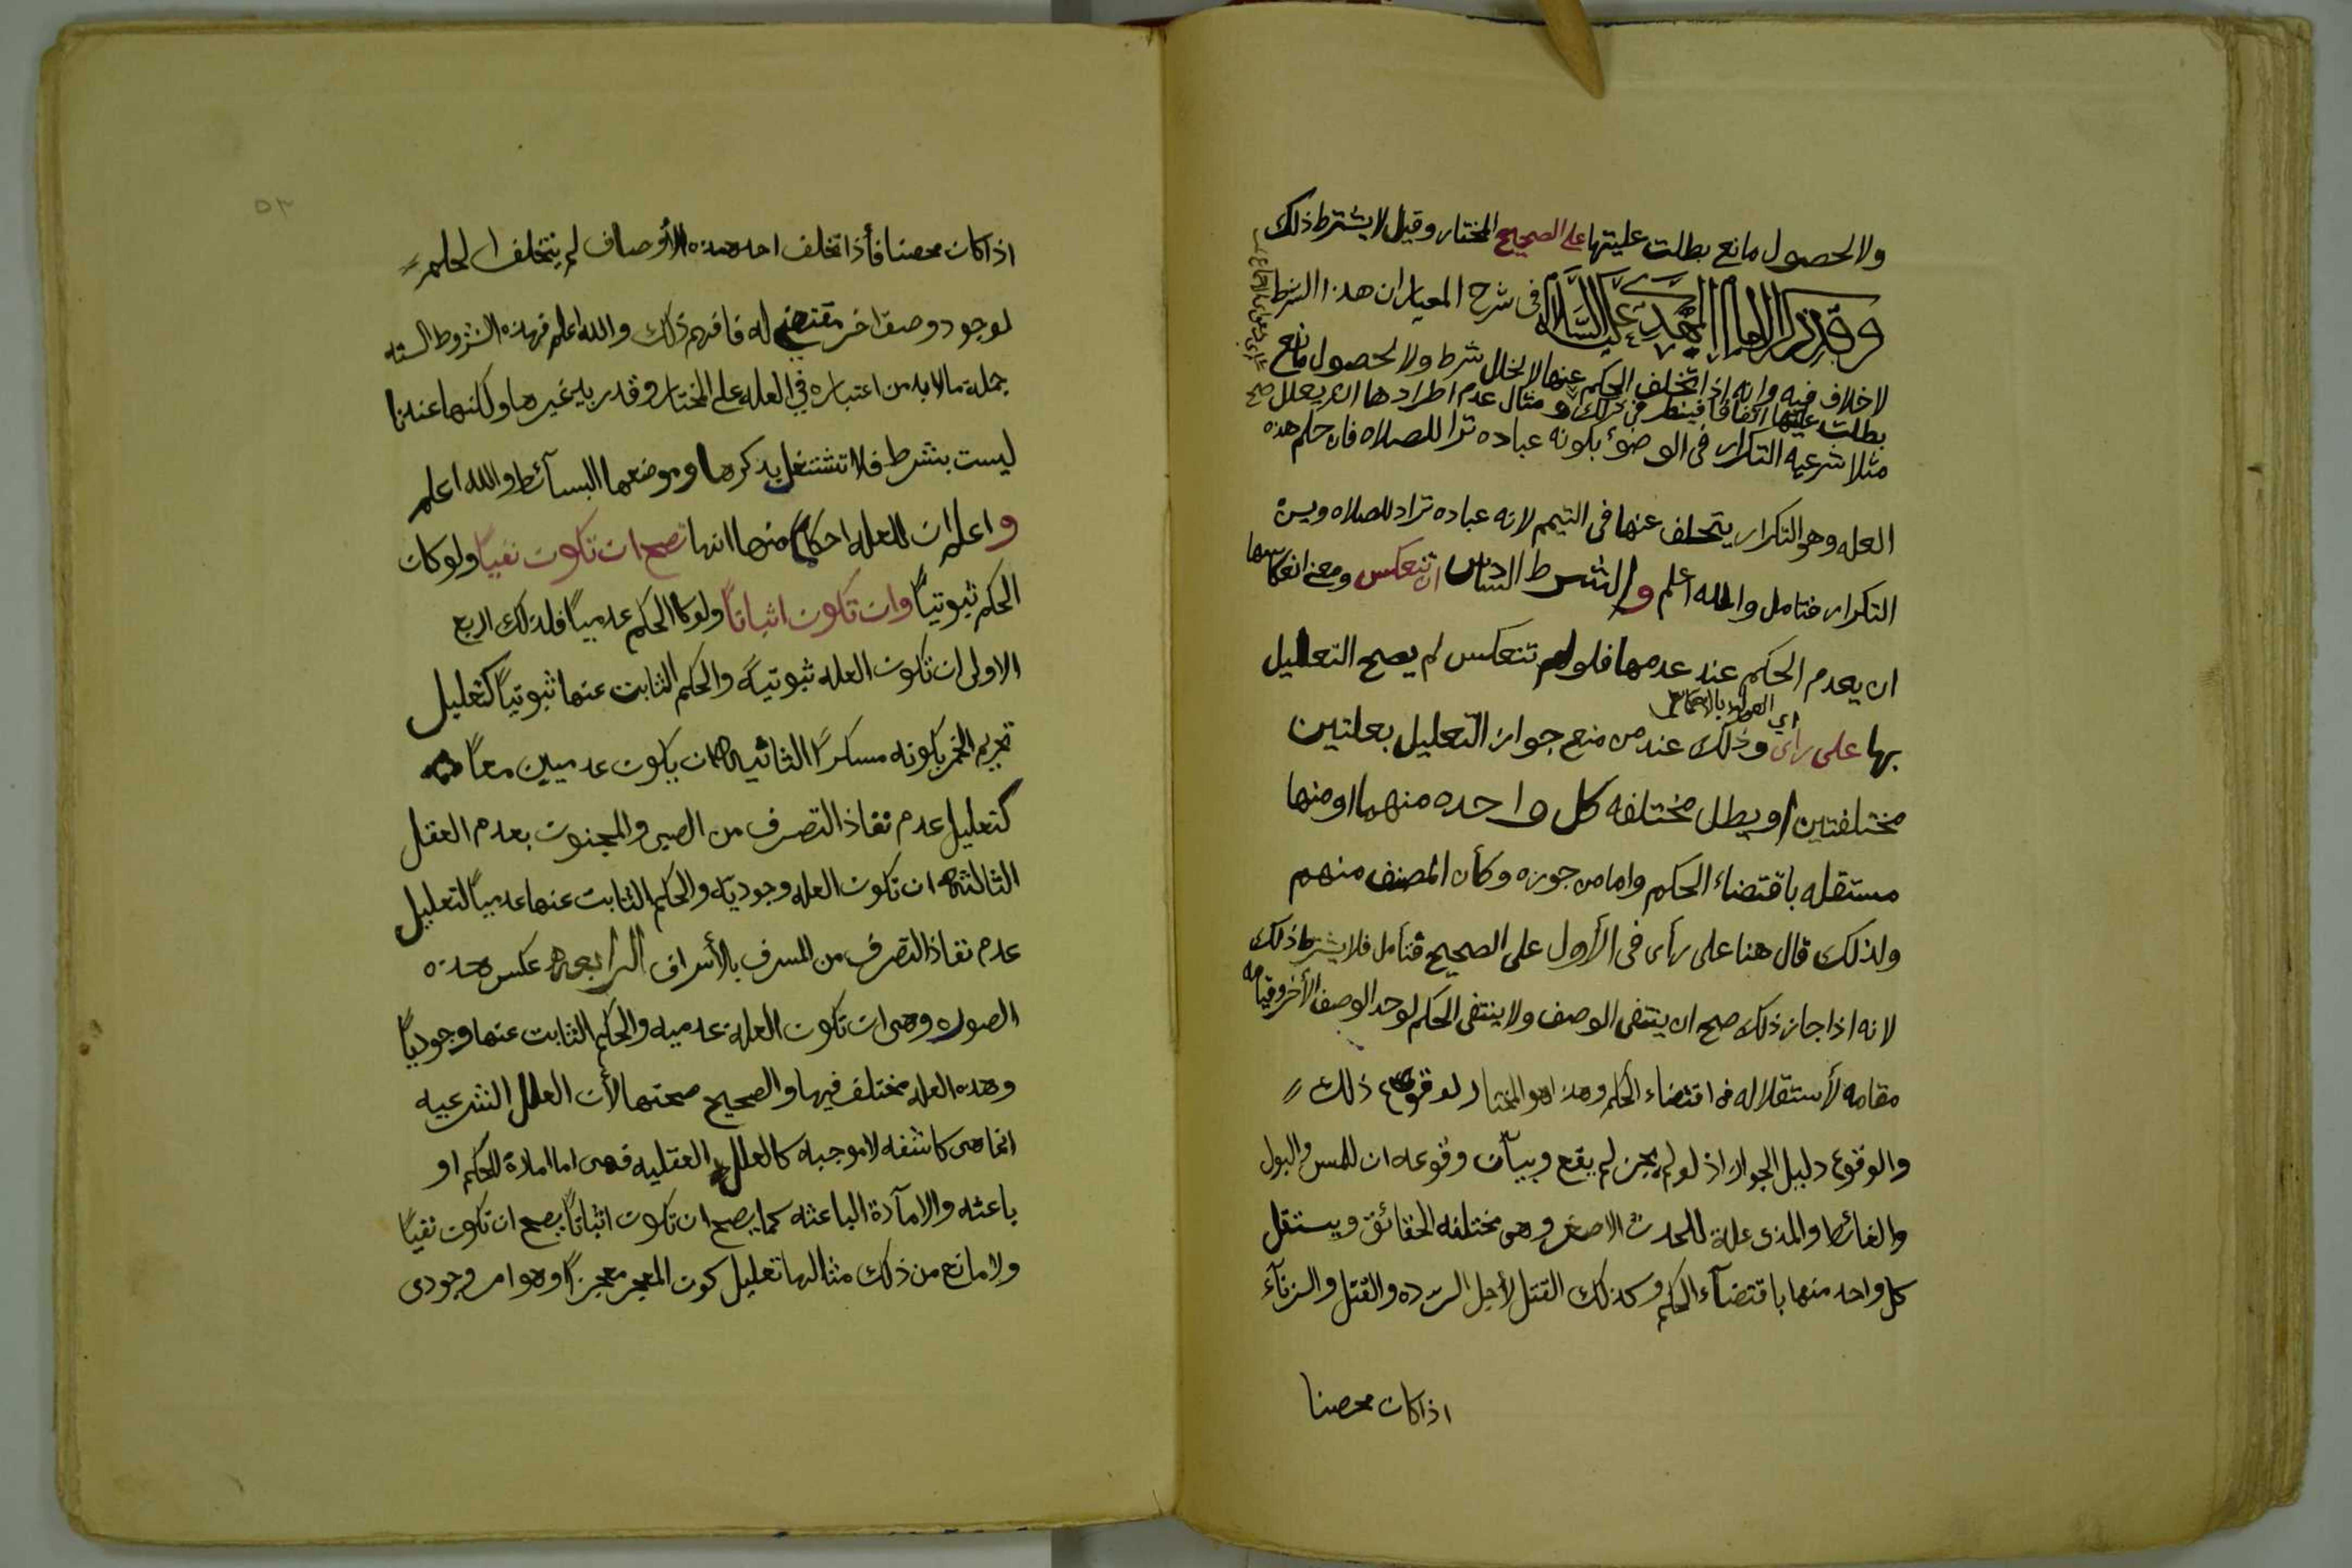 ولا لحصول مانع بطلت عليتها على الصحيح المختار وقيل لا يشترط ذلك
وقد ذكر الامام المهدي عليه السلام في شرح المعيار ان هذا الشرط
لا خلاف فيه وانه اذا تخلف الحكم عنها لا لخلل شرط ولا لحصول مانع
بطلت عليتها اتفاقا فينظر في ذلك ومثال عدم اطرادها ان يعلل
مثلا شرعيه التكرار في الوضوء بكونه عباده تراد للصلاه فان حكم هذه
العله وهو التكرار يتخلف عنها في التيمم لانه عباده تراد للصلاه ويسن
التكرار فتامل والله اعلم والشرط السادس ان تنعكس ومعنى انعكاسها
ان يعدم الحكم عند عدمها فلو لم تنعكس لم يصح التعليل
بها على راي وذلك عند من منع جواز التعليل بعلتين
مختلفتين او بطل مختلفه كل واحده منهما او منها
مستقله باقتضاء الحكم واما من جوزه وكأن المصنف منهم
ولذلك قال هنا على رأى في الأول على الصحيح فتأمل فلا يشترط ذلك
لانه اذا جاز ذلك صح ان ينتفى الوصف ولا ينتفى الحكم لوجد الوصف الأخر وقيامه
مقامه لأستقلاله في اقتضاء الحكم وهذا هو المختار لوقوع ذلك
والوقوع دليل الجواز اذ لو لم يجز لم يقع وبيان وقوعه ان للمس والبول
والغائط والمذى علة للحدث الاصغر وهى مختلفه الحقائق ويستقل
كل واحد منها باقتضآء الحكم وكذلك القتل لأجل الرده والقتل والزنآء
اذا كان محصنا
٥٢
اذا كان محصنا فأذا تخلف احد هذه الأوصاف لم يتخلف الحكم
لوجود وصف اخر مقتضى له فافهم ذلك والله اعلم فهذه الشروط السته
جملة ما لا بد من اعتباره في العله على المختار وقد ريد غيرها ولكنها عندنا
ليست بشرط فلا تشتغل بذكرها وموضعها البسآئط والله اعلم
واعلم ان للعله احكاما منها انها تصح ان تكون نفيا ولو كان
الحكم ثبوتيا وان تكون اثباتا ولو كان الحكم عدميا فلذلك اربع
الاولى ان تكون العله ثبوتية والحكم الثابت عنها ثبوتيا كتعليل
تحريم الخمر بكونه مسكرا الثانيه ان يكون عدميين معا
كتعليل عدم نفاذ التصرف من الصبى والمجنون بعدم العقل
الثالثه ان تكون العله وجوديه والحكم الثابت عنها عدميا لتعليل
عدم نفاذ التصرف من المسرف بالأسراف الرابعه عكس هذه
الصوره وهى ان تكون العلة عدميه والحكم الثابت عنها وجوديا
وهذه العله مختلف فيها والصحيح صحتها لأن العلل الشرعيه
انما هى كاشفه لا موجبه كالعلل العقليه فهى اما امارة للحكم او
باعثه والامآرة الباعثه كما يصح ان تكون اثباتا يصح ان تكون نفيا
ولا مانع من ذلك مثالها تعليل كون المعجز معجزا وهو امر وجودى